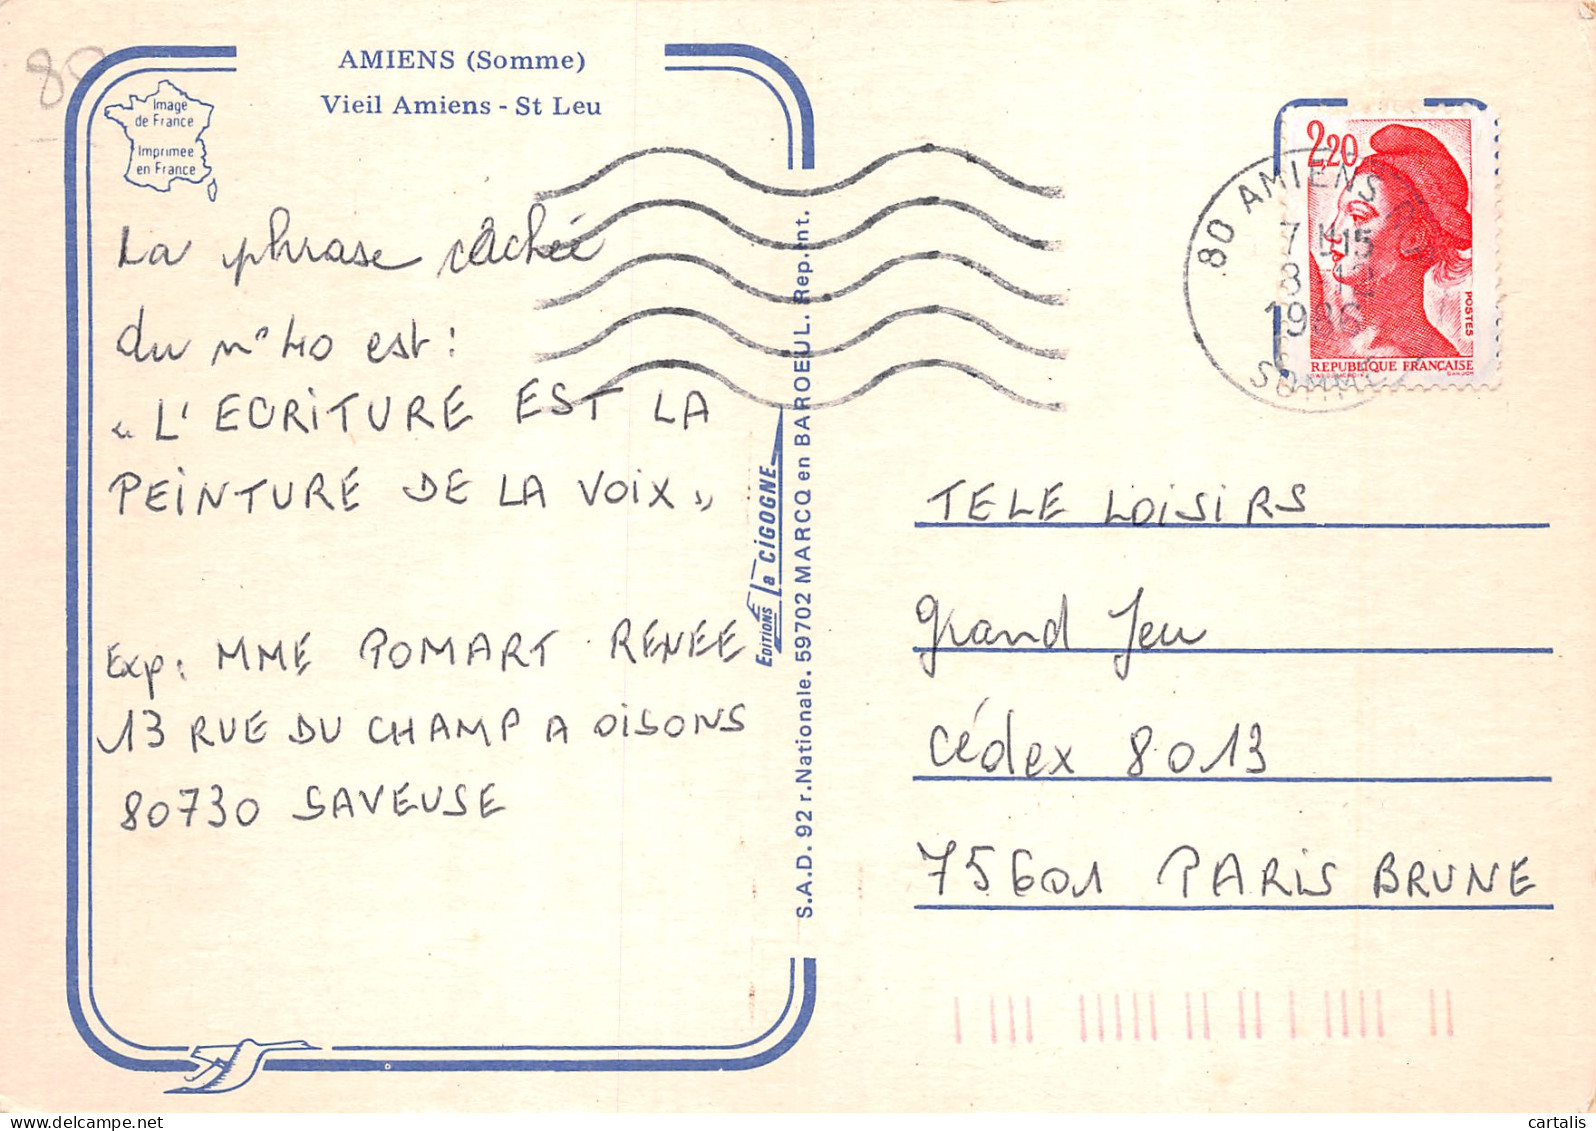 80
AMIENS (Somme)
Vieil Amiens - St Leu
Image
de France
Imprimée
en France
La phrase câchée
du n° 40 est :
« L' ECRITURE EST LA
PEINTURE DE LA VOIX »
Exp: MME POMART RENEE
13 RUE DU CHAMP A OISONS
80730 SAVEUSE
EDITIONS La CIGOGNE
S.A.D. 92 r. Nationale. 59702 MARCQ en BAROEUL. Rep. int.
2,20
POSTES
REPUBLIQUE FRANÇAISE
80 AMIENS
7 H15
8 - 12
1986
SOMME
TELE LOISIRS
grand Jeu
Cédex 8013
75601 PARIS BRUNE
www.delcampe.net
cartalis